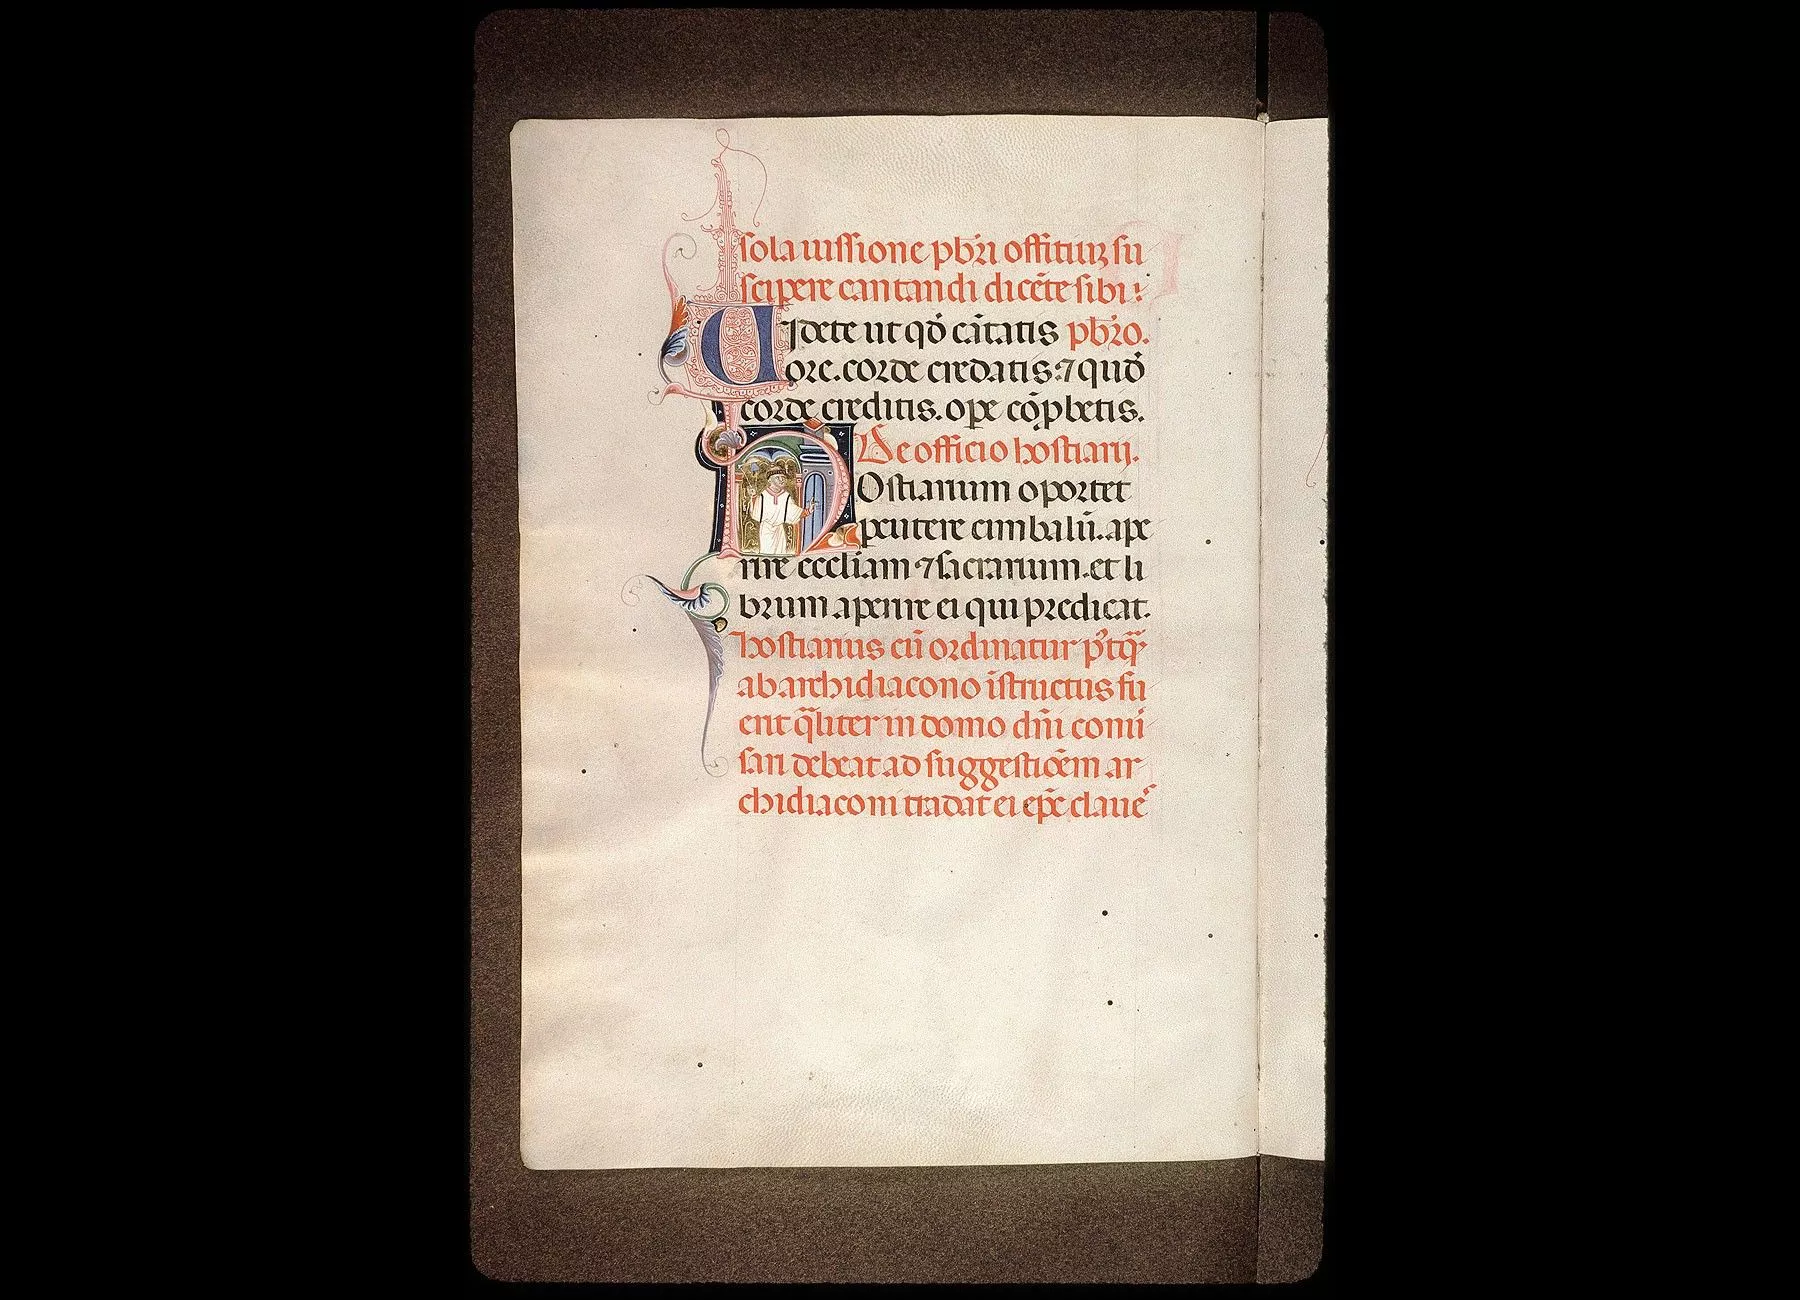 sola iussione pbr̄i offitiuʒ su
scipere cantandi dicēte sibi:
Uidete ut qđ cātatis pbr̄o.
ore. corde credatis. ⁊ quđ
corde creditis. ope cōpbetis.
De officio hostiarij.
HOstiarium oportet
percutere cimbalū. ape
rire eccliam ⁊ sacrarium. et li
brum aperire ei qui predicat.
hostiarius cū ordinatur
ab archidiacono īstructus fu
erit qͣliter in domo dn̄i conu
sari debeat ad suggestioēm ar
chidiaconi tradat ei ep̄c claue